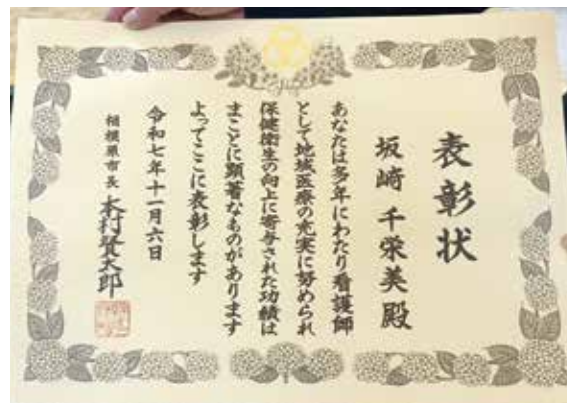 表彰状
坂崎 千栄美 殿
あなたは多年にわたり看護師
として地域医療の充実に努められ
保健衛生の向上に寄与された功績は
まことに顕著なものがあります
よってここに表彰します
令和七年十一月六日
相模原市長 本村賢太郎